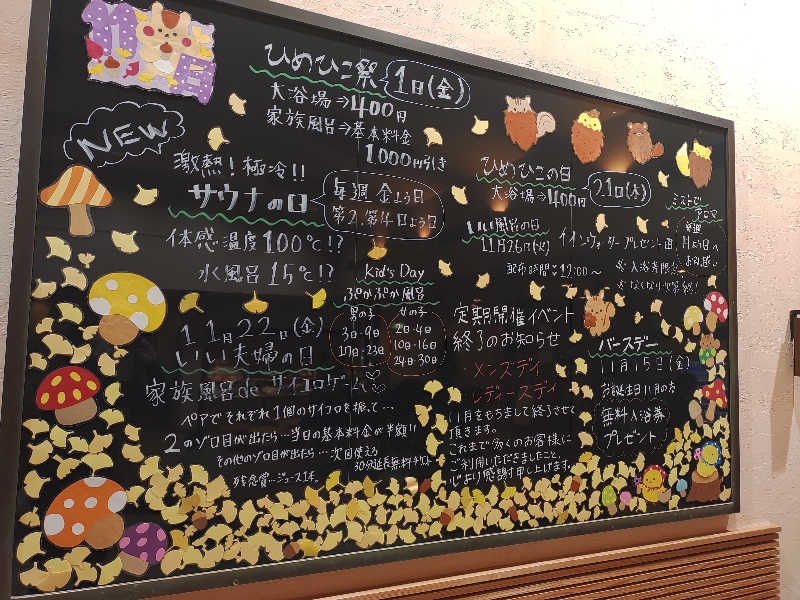 11月
ひめひこ祭 1日(金)
大浴場⇒400円
家族風呂⇒基本料金
1000円引き
NEW
激熱!極冷!!
サウナの日
毎週金よう日
第2、第4日よう日
体感温度100℃!?
水風呂15℃!?
Kid's Day
ぷかぷか風呂
男の子
3日・9日
17日・23日
女の子
2日・4日
10日・16日
24日・30日
11月22日(金)
いい夫婦の日
家族風呂deサイコロゲーム
ペアでそれぞれ1個のサイコロを振って…
2のゾロ目が出たら…当日の基本料金が半額!!
その他のゾロ目が出たら…次回使える
30分延長無料チケット
残念賞…ジュース1本。
ひめひこの日
大浴場⇒400円
21日(木)
いい風呂の日
11月26日(火)
配布時間 12:00〜
ミストで
アロマ
毎週
定期開催イベント
終了のお知らせ
・メンズデイ
・レディースデイ
11月をもちまして終了させて
頂きます。
これまで多くのお客様に
ご利用いただきましたこと、
心より感謝申し上げます。
バースデー
11月15日(金)
お誕生日11月の方
無料入浴券
プレゼント